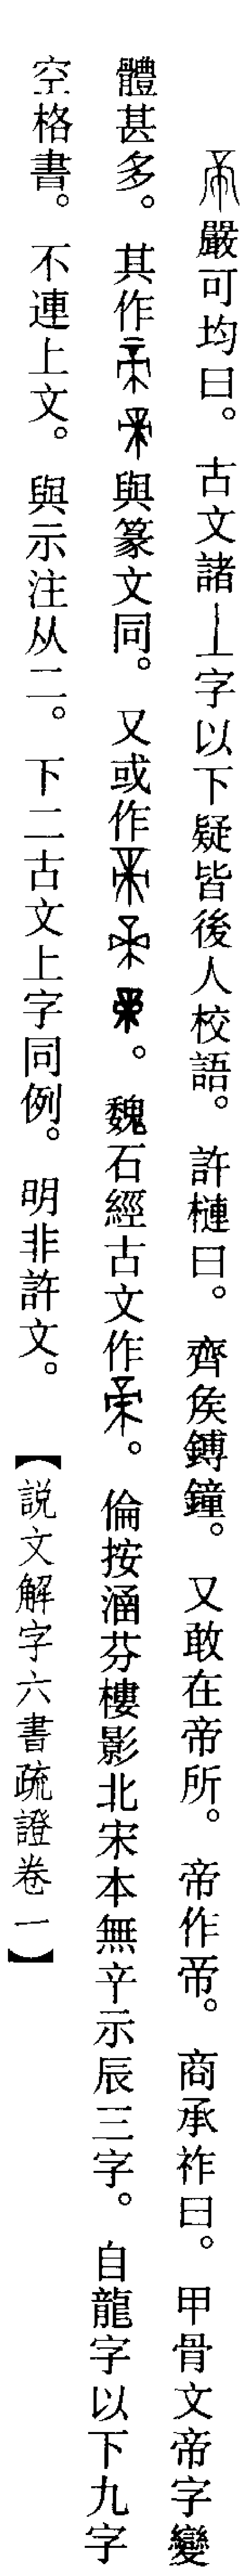 嚴可均曰。古文諸丄字以下疑皆後人校語。許槤曰。齊矦鎛鐘。又敢在帝所。帝作。商承祚曰。甲骨文帝字變
體甚多。其作與篆文同。又或作。魏石經古文作。倫按涵芬樓影北宋本無䇂示辰三字。自龍字以下九字
空格書。不連上文。與示注从二。下二古文上字同例。明非許文。【説文解字六書疏證卷一】